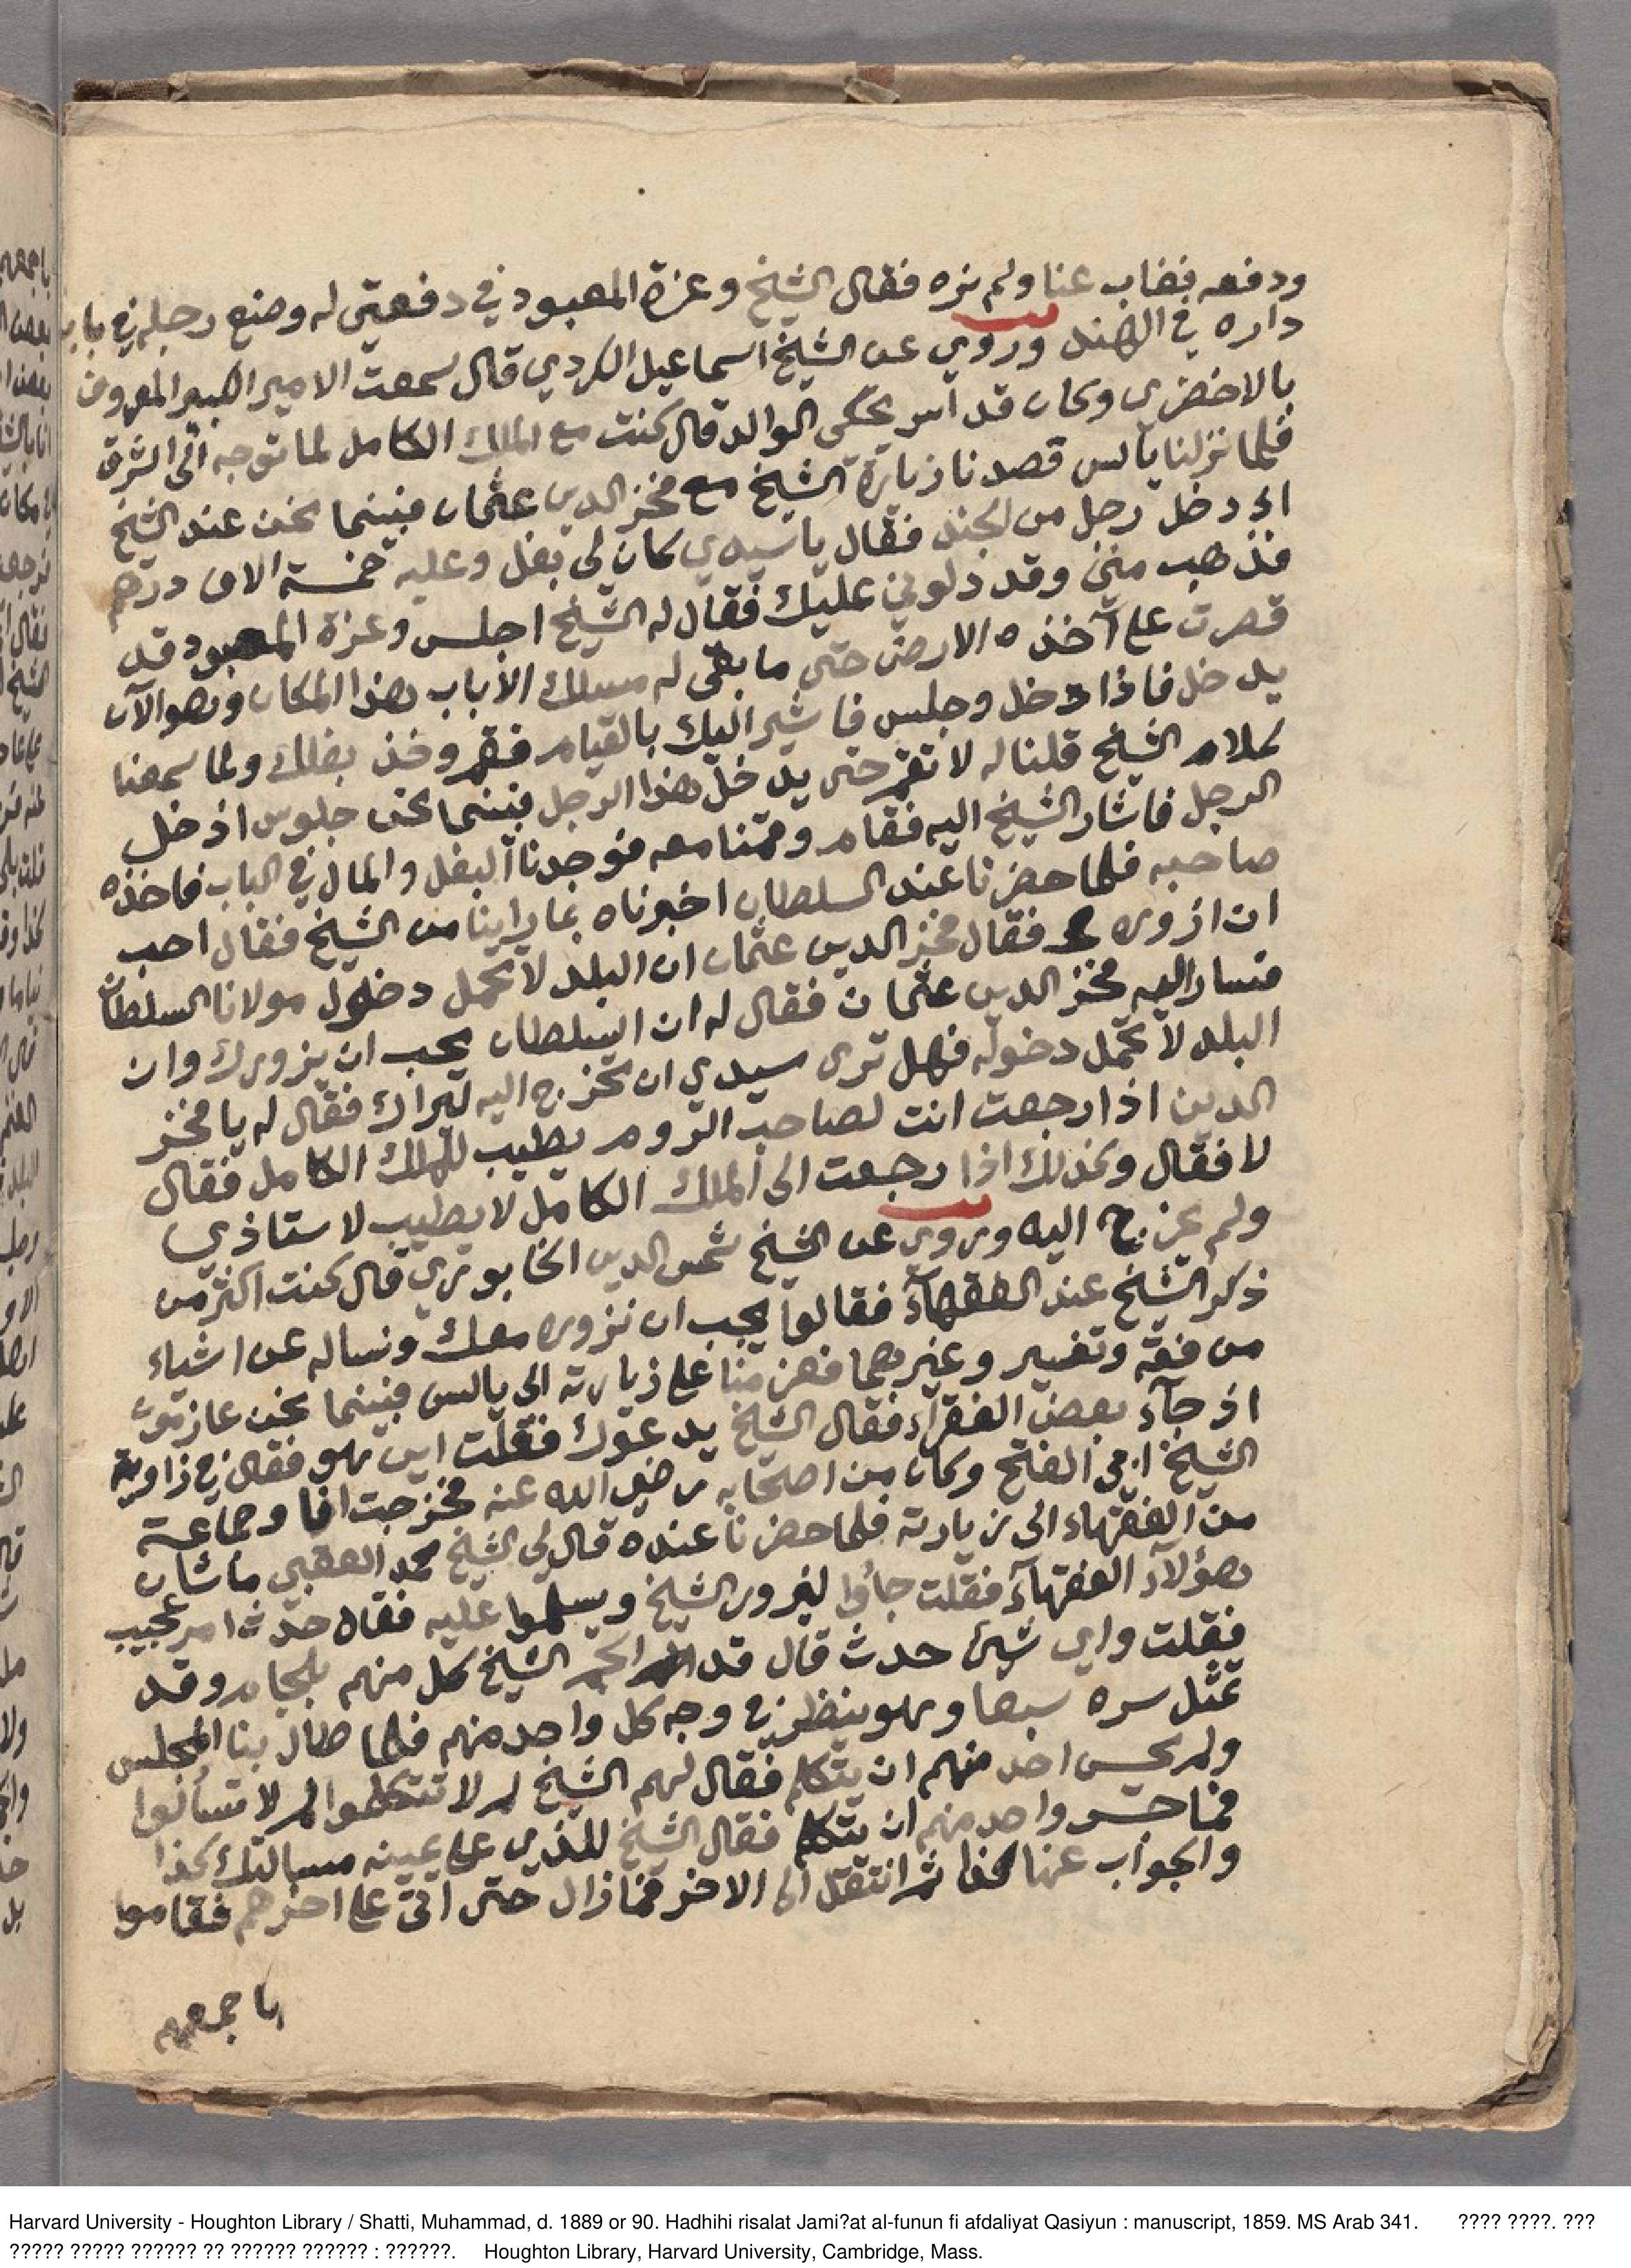 ودفعه فغاب عنا ولم نره فقال الشيخ وعزة المعبود في دفعتي له وضع رجله في باب
داره في الهند وروي عن الشيخ اسماعيل الكردي قال سمعت الامير الكبير المعروف
بالاخضري وكان قد اسر يحكي الوالد قال كنت مع الملك الكامل لما توجه الى الشرق
فلما نزلنا بالس قصدنا زيارة الشيخ مع فخر الدين عثمان فبينما نحن عند الشيخ
اذ دخل رجل من الجند فقال يا سيدي كان لي بغل وعليه خمسة الاف درهم
فذهب مني وقد دلوني عليك فقال له الشيخ اجلس وعزة المعبود قد
قصرت على آخذه الارض حتى ما بقى له مسلك الا باب هذا المكان وهو الآن
يدخل فاذا دخل وجلس فاشير اليك بالقيام فقم وخذ بغلك ولما سمعنا
كلام الشيخ قلنا له لا تقم حتى يدخل هذا الرجل فبينما نحن جلوس اذ دخل
الرجل فاشار الشيخ اليه فقام وقمنا معه فوجدنا البغل والمال في الباب فاخذه
صاحبه فلما حضرنا عند السلطان اخبرناه بما راينا من الشيخ فقال احب
ان ازوره فقال فخر الدين عثمان ان البلد لا تحمل دخول مولانا السلطان
فسار اليه فخر الدين عثمان فقال له ان السلطان يحب ان يزورك وان
البلد لا تحمل دخوله فهل ترى سيدي ان تخرج اليه ليراك فقال له يا فخر
الدين اذا رجعت انت لصاحب الروم يطيب للملك الكامل فقال
لا فقال وكذلك اذا رجعت الى الملك الكامل لا يطيب لاستاذي
ولم يخرج اليه وروي عن الشيخ شمس الدين الخابوري قال كنت اكثر من
ذكر الشيخ عند الفقهآء فقالوا يجب ان نزوره معك ونساله عن اشياء
من فقه وتفسير وغيرهما فعزمنا على زيارته الى بالس فبينما نحن عازمون
اذ جآء بعض الفقرآء فقال الشيخ يدعوك فقلت اين هو فقال في زاوية
الشيخ ابي الفتح وكان من اصحابه رضي الله عنه فخرجت انا وجماعة
من الفقهاء الى زيارته فلما حضرنا عنده قال لي الشيخ محمد العقبي ما شان
هؤلآء الفقهآء فقلت جاؤا ليزور الشيخ ويسلموا عليه فقال حدث امر عجيب
فقلت واي شيئ حدث قال قد الجم الشيخ كل منهم بلجام وقد
تمثل سره سبعا وهو ينظر في وجه كل واحد منهم فلما طال بنا المجلس
ولم يحس احد منهم ان يتكلم فقال لهم الشيخ لم لا تتكلموا لم لا تسألوا
فما جسر واحد منهم ان يتكلم فقال الشيخ للذي على يمينه مسالتك كذا
والجواب عنها كذا ثم انتقل الى الاخر فما زال حتى اتى على اخرهم فقاموا
باجمعهم
Harvard University - Houghton Library / Shatti, Muhammad, d. 1889 or 90. Hadhihi risalat Jami?at al-funun fi afdaliyat Qasiyun : manuscript, 1859. MS Arab 341. ???? ????. ???
????? ????? ?????? ?? ?????? ?????? : ??????. Houghton Library, Harvard University, Cambridge, Mass.